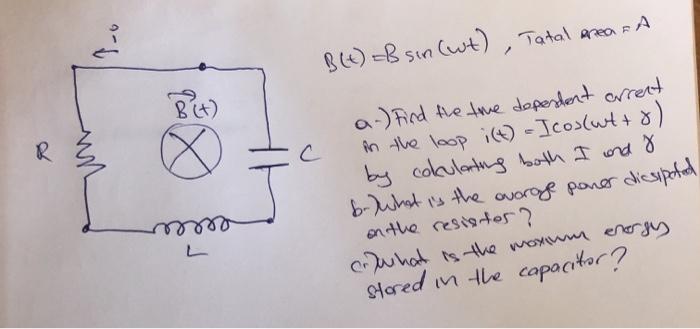 i
B(t) = B sin(wt) , Total area = A
B(t)
R
C
L
a-) Find the time dependent current
in the loop i(t) = I cos(wt + γ)
by calculating both I and γ
b-) What is the average power dissipated
on the resistor?
c-) What is the maximum energy
stored in the capacitor?